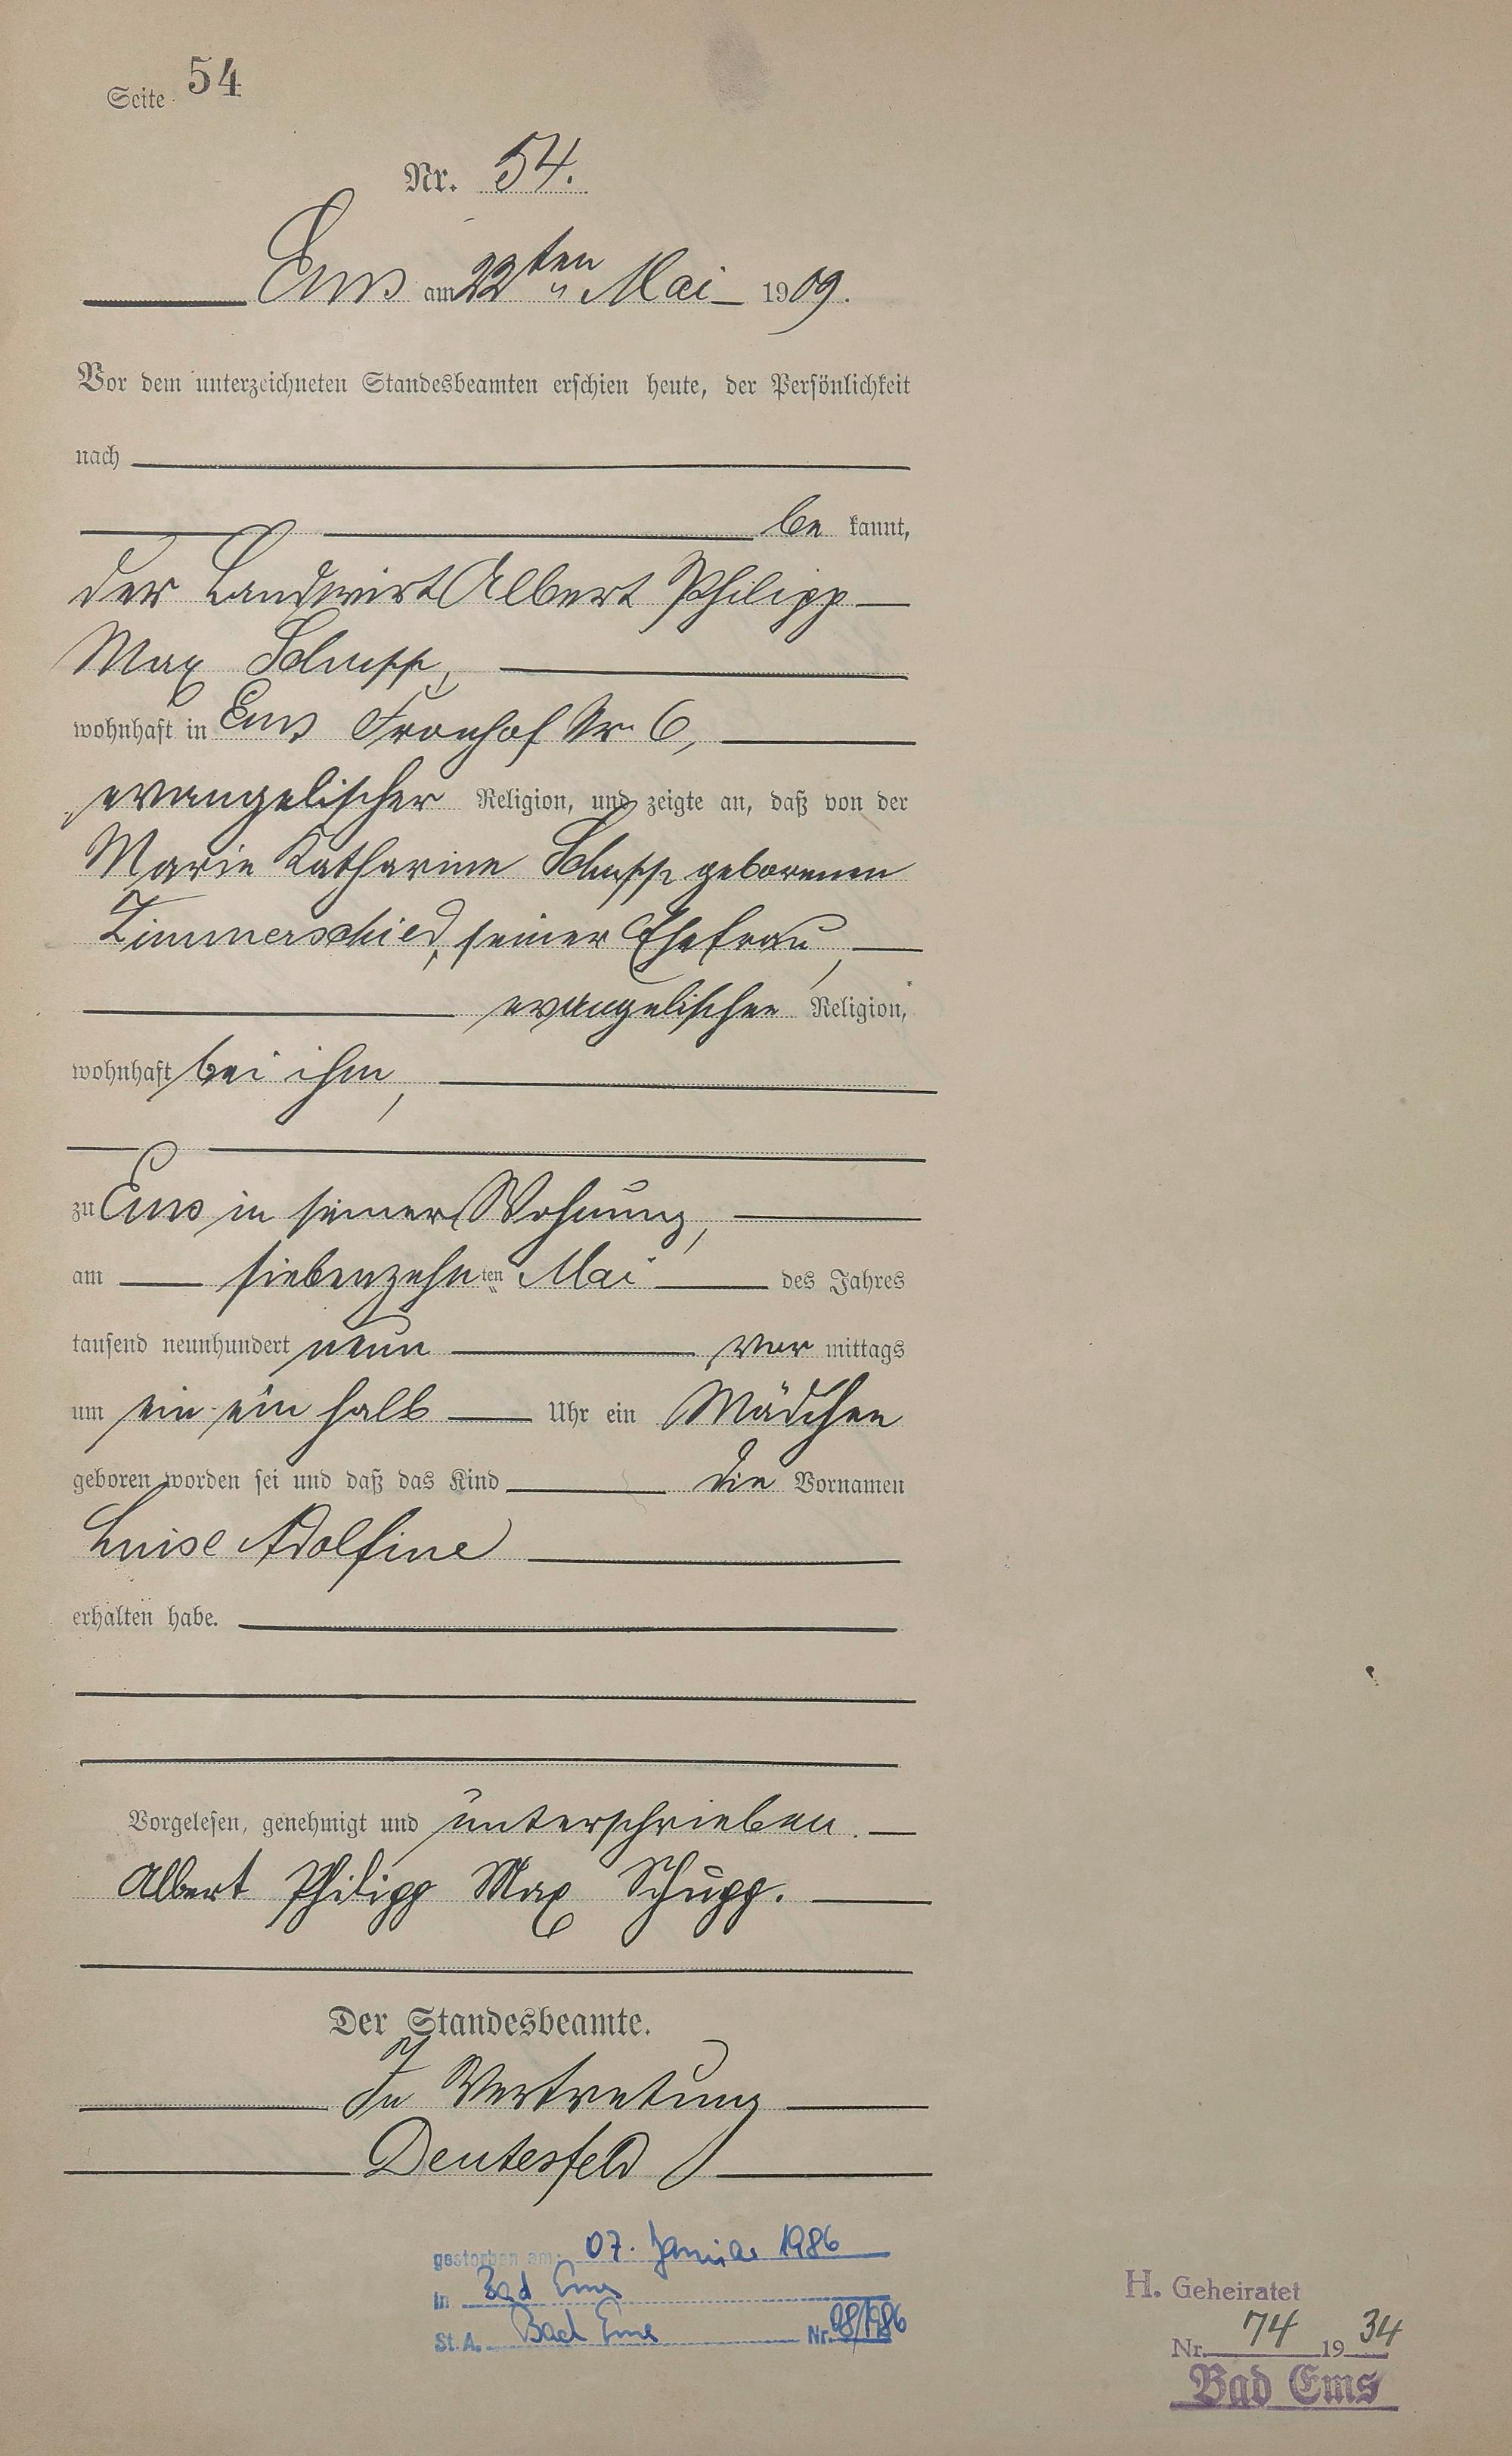 Seite 54
Nr. 54.
Ems am 22ten Mai 1909.
Vor dem unterzeichneten Standesbeamten erschien heute, der Persönlichkeit
nach
be kannt,
der Landwirt Albert Philipp
Max Schupp,
wohnhaft in Ems Fronhof Nr. 6,
evangelischer Religion, und zeigte an, daß von der
Marie Katharine Schupp geborenen
Zimmerschied, seiner Ehefrau,
evangelischer Religion,
wohnhaft bei ihm,
zu Ems in seiner Wohnung,
am siebenzehnten Mai des Jahres
tausend neunhundert neun vor mittags
um ein ein halb Uhr ein Mädchen
geboren worden sei und daß das Kind die Vornamen
Luise Adolfine
erhalten habe.
Vorgelesen, genehmigt und unterschrieben.
Albert Philipp Max Schupp.
Der Standesbeamte.
In Vertretung
Deutesfeld
gestorben am: 07. Januar 1986
in Bad Ems
St. A. Bad Ems Nr. 08/1986
H. Geheiratet
Nr. 74 1934
Bad Ems